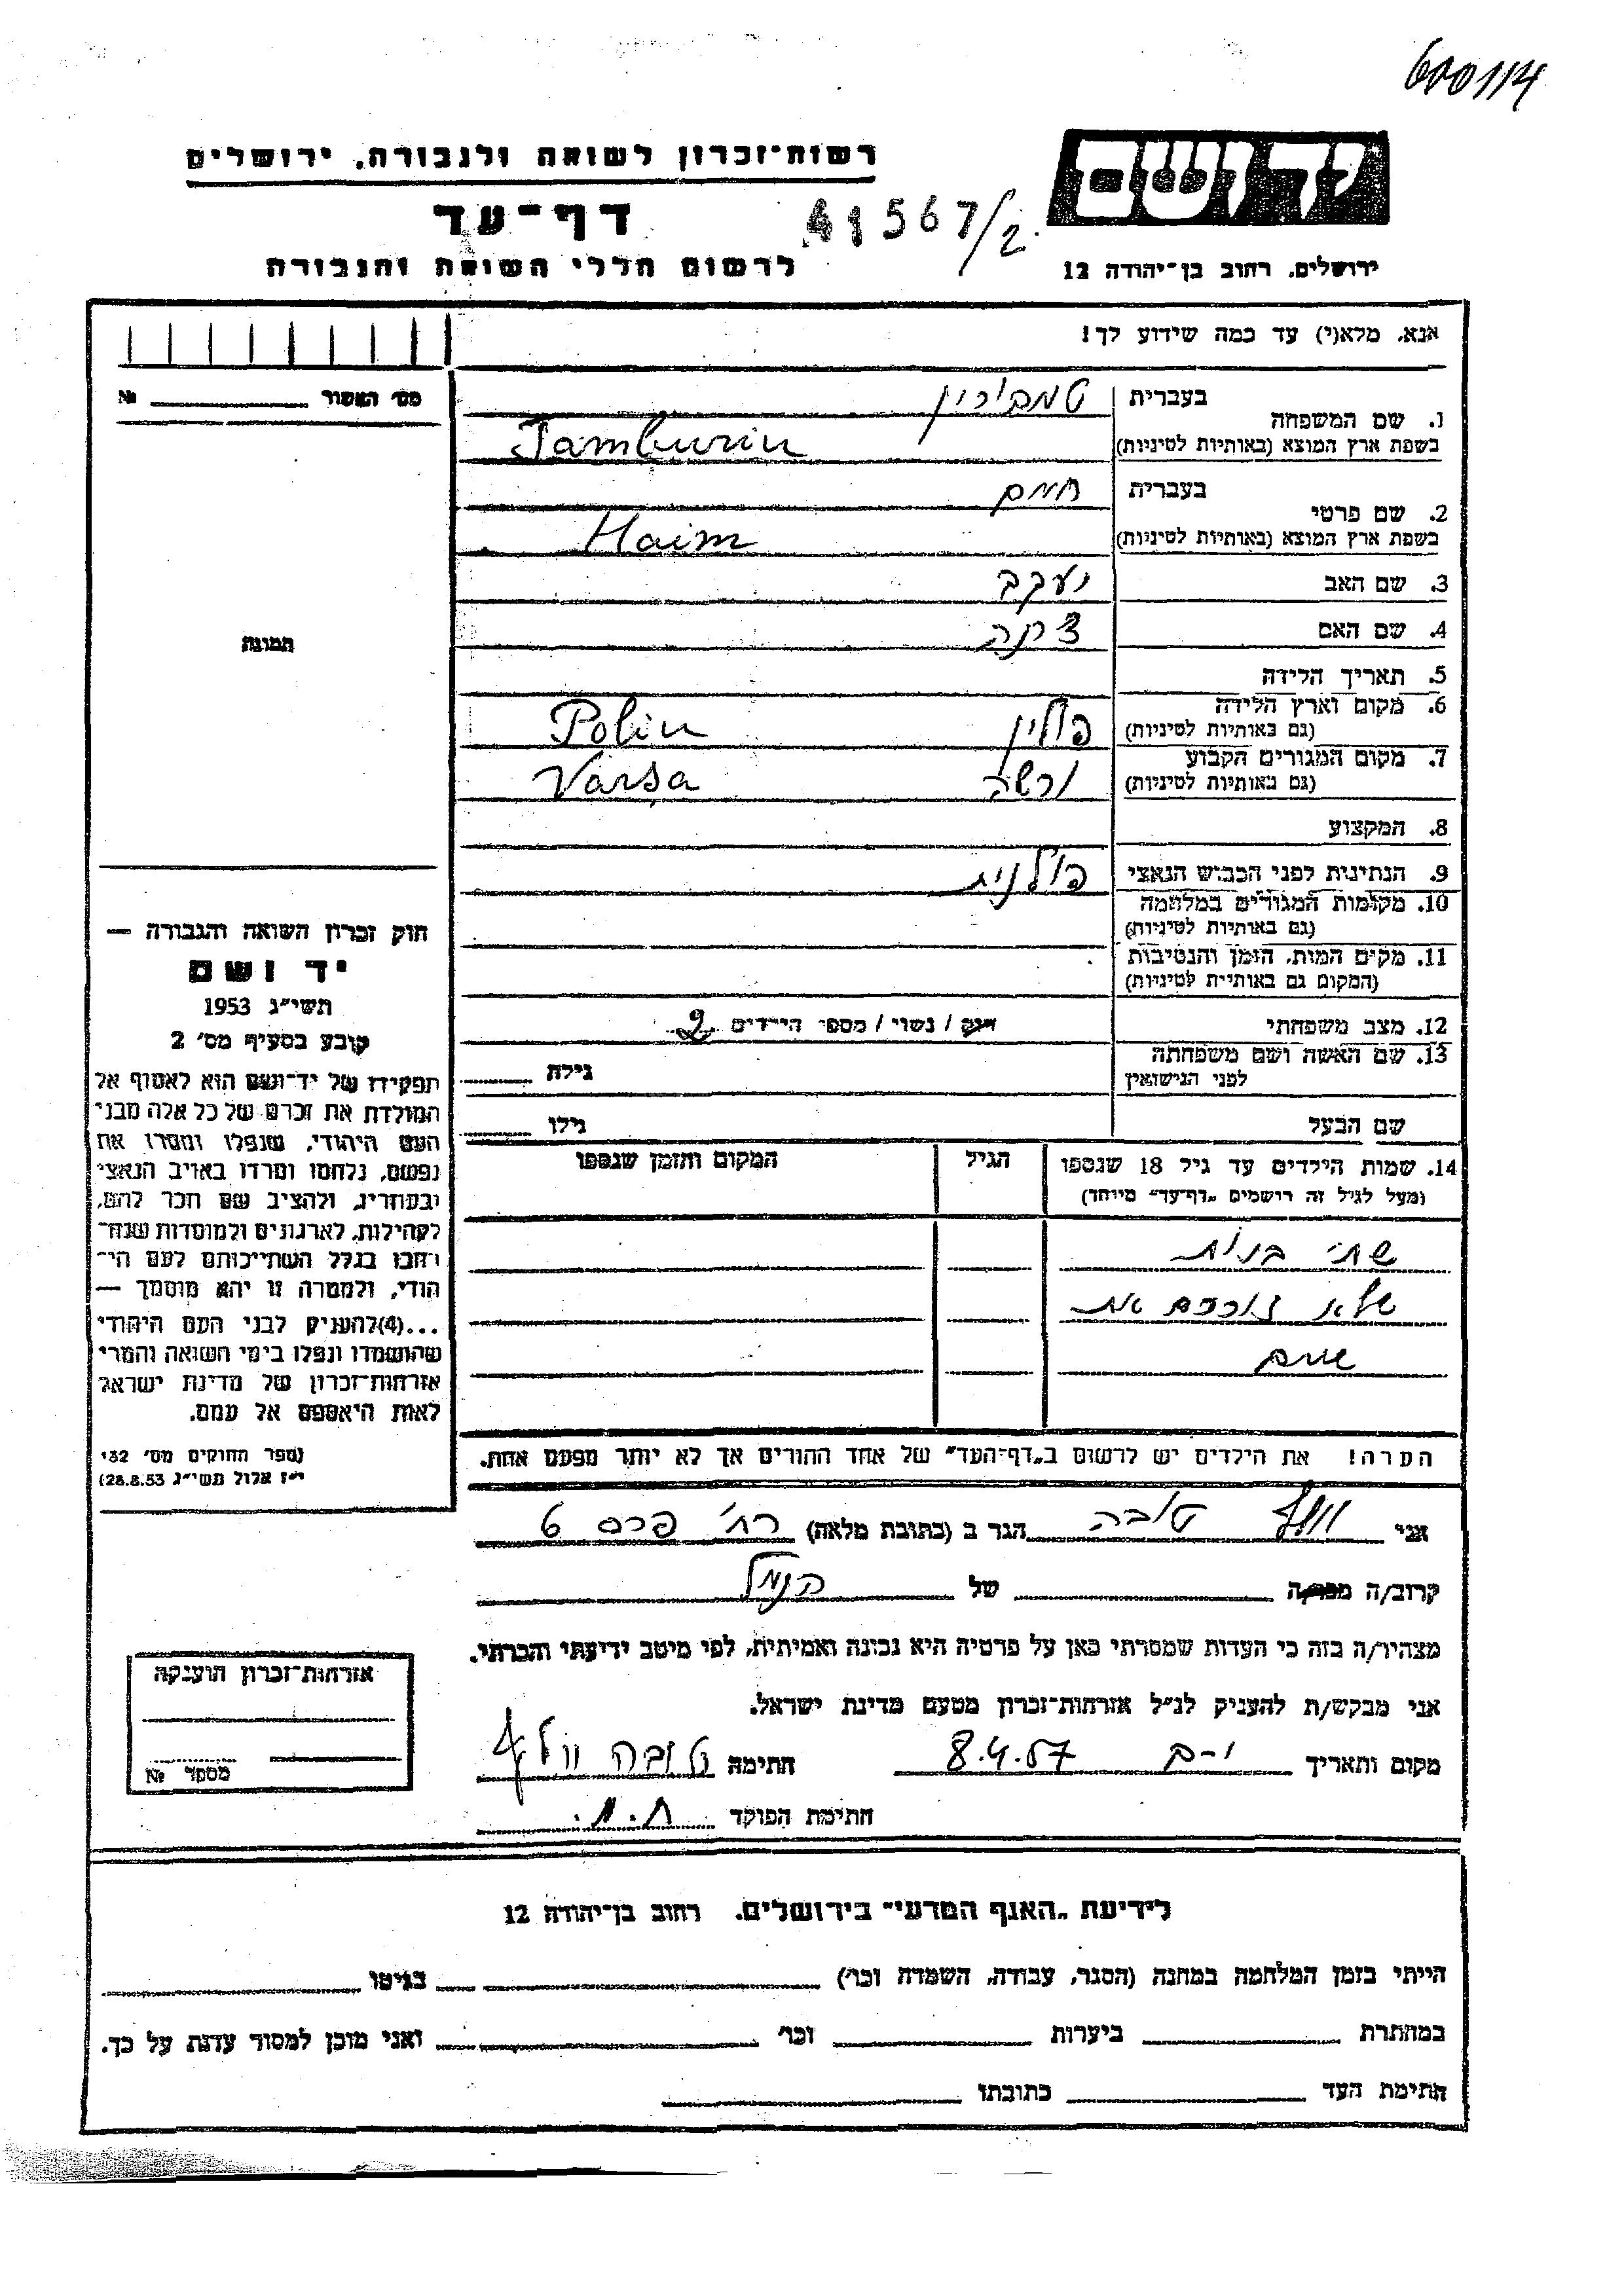 600114
יד ושם
רשות-זכרון לשואה ולגבורה, ירושלים
דף-עד
41567/2
לרשום חללי השואה והגבורה
ירושלים, רחוב בן-יהודה 12
אנא, מלא(י) עד כמה שידוע לך!
מס' האשור №
1. שם המשפחה בעברית טמבורין
בשפת ארץ המוצא (באותיות לטיניות) Tamburin
2. שם פרטי בעברית חיים
בשפת ארץ המוצא (באותיות לטיניות) Haim
3. שם האב יעקב
4. שם האם
תמונה
5. תאריך הלידה
6. מקום וארץ הלידה (גם באותיות לטיניות) פולין Polin
7. מקום המגורים הקבוע (גם באותיות לטיניות) ורשה Varsa
8. המקצוע
9. הנתינות לפני הכבוש הנאצי פולנית
10. מקומות המגורים במלחמה (גם באותיות לטיניות)
11. מקום המות, הזמן והנסיבות (המקום גם באותיות לטיניות)
12. מצב משפחתי רווק / נשוי / מספר הילדים 2
13. שם האשה ושם משפחתה לפני הנישואין גילה
שם הבעל גילו
14. שמות הילדים עד גיל 18 שנספו הגיל המקום והזמן שנספו
(מעל לגיל זה רושמים "דף-עד" מיוחד)
שתי בנות
שלא זוכרים את
שמם
הערה! את הילדים יש לרשום ב"דף-העד" של אחד ההורים אך לא יותר מפעם אחת.
חוק זכרון השואה והגבורה —
יד ושם
תשי"ג 1953
קובע בסעיף מס' 2
תפקידו של יד-ושם הוא לאסוף אל
המולדת את זכרם של כל אלה מבני
העם היהודי, שנפלו ומסרו את
נפשם, נלחמו ומרדו באויב הנאצי
ובעוזריו, ולהציב שם וזכר להם,
לקהילות, לארגונים ולמוסדות שנח־
רבו בגלל השתייכותם לעם הי־
הודי, ולמטרה זו יהא מוסמך —
...(4)להעניק לבני העם היהודי
שהושמדו ונפלו בימי השואה והמרי
אזרחות-זכרון של מדינת ישראל
לאות היאספם אל עמם.
(ספר החוקים מס' 132
י"ז אלול תשי"ג 28.8.53)
אני וולף טובה הגר ב (כתובת מלאה) רח' פרס 6
קרוב/ה מכר/ה של הנ"ל
מצהיר/ה בזה כי העדות שמסרתי כאן על פרטיה היא נכונה ואמיתית, לפי מיטב ידיעתי והכרתי.
אני מבקש/ת להעניק לנ"ל אזרחות-זכרון מטעם מדינת ישראל.
מקום ותאריך י-ם 8.4.57 חתימה טובה וולף
חתימת הפוקד
אזרחות-זכרון הוענקה
מספר №
לידיעת "האגף המדעי" בירושלים, רחוב בן-יהודה 12
הייתי בזמן המלחמה במחנה (הסגר, עבודה, השמדה וכו') בגיטו
במחתרת ביערות וכו' ואני מוכן למסור עדות על כך.
חתימת העד כתובתו